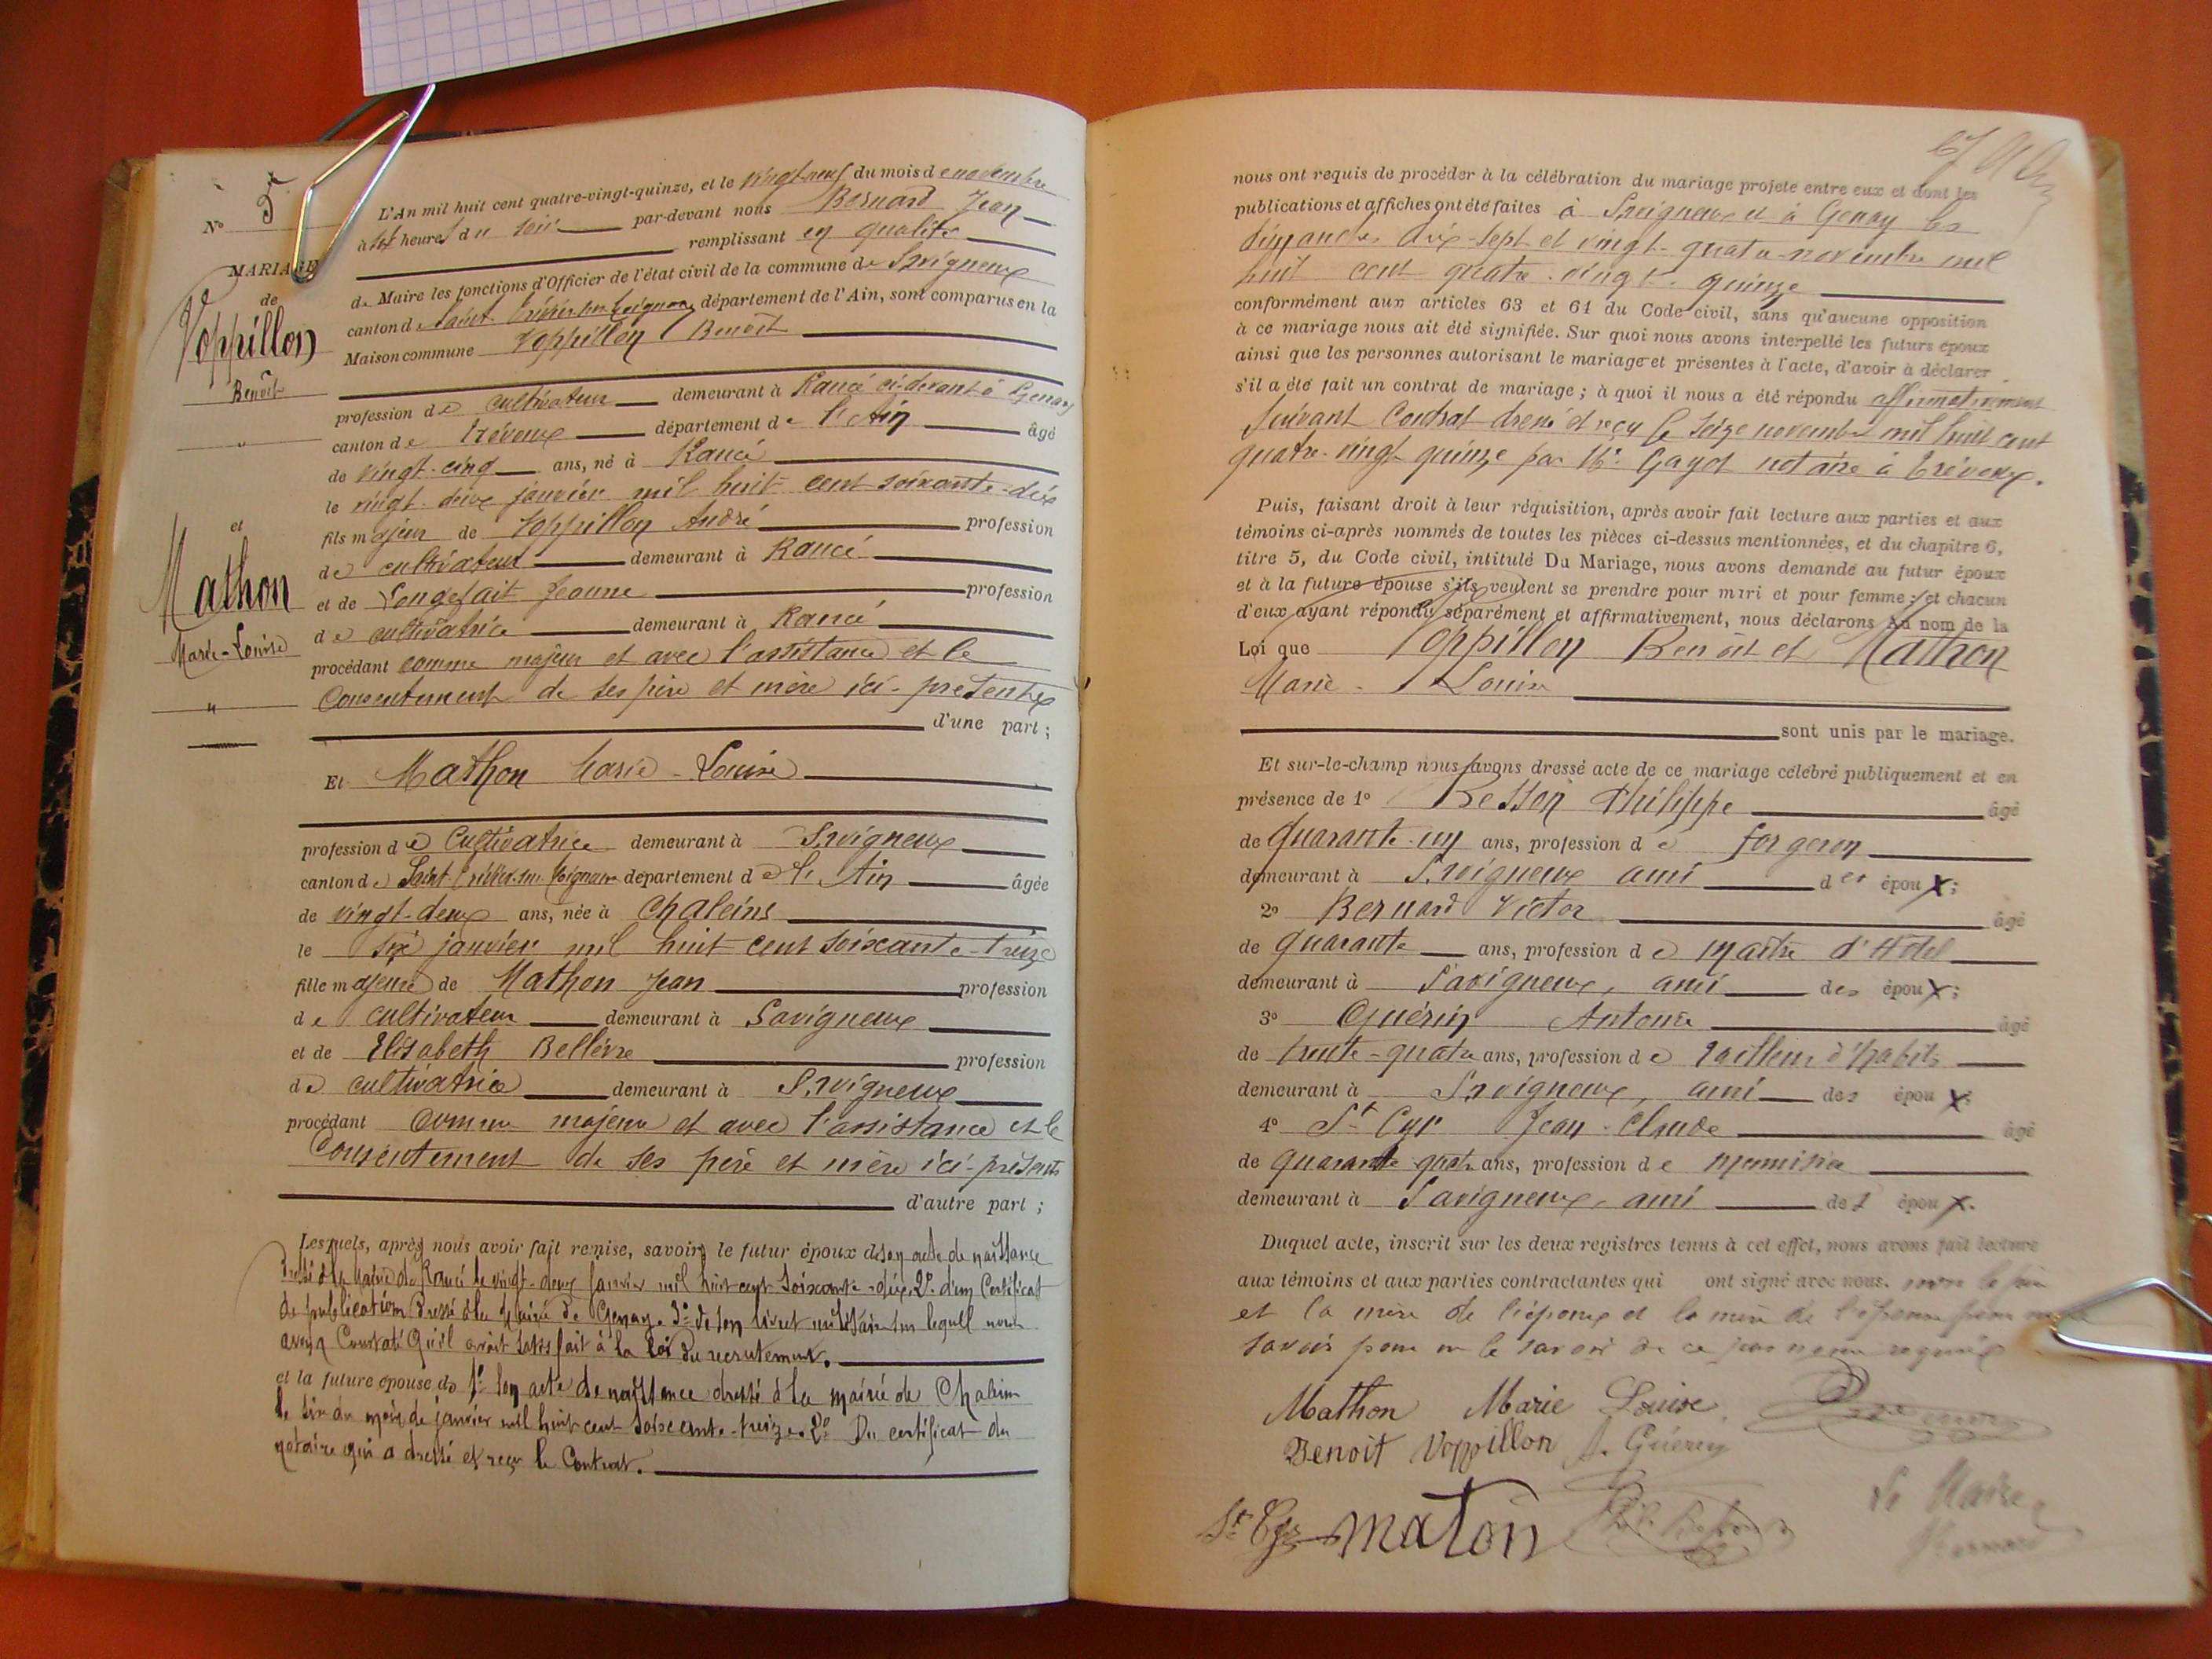 N° 5
MARIAGE
de
Voppillon
Benoît
"
et
Mathon
Marie-Louise
"
L'An mil huit cent quatre-vingt-quinze, et le vingt neuf du mois de novembre
à sept heures du soir par-devant nous Bernard Jean
remplissant en qualité
de Maire les fonctions d'Officier de l'état civil de la commune de Savigneux
canton de Saint Trivier sur Moignans département de l'Ain, sont comparus en la
Maison commune Voppillon Benoît
profession de cultivateur demeurant à Rancé ci-devant à Genay
canton de Trévoux département de l'Ain âgé
de vingt-cinq ans, né à Rancé
le vingt deux janvier mil huit cent soixante-dix
fils majeur de Voppillon André profession
de cultivateur demeurant à Rancé
et de Longefait Jeanne profession
de cultivatrice demeurant à Rancé
procédant comme majeur et avec l'assistance et le
Consentement de ses père et mère ici-présents
d'une part ;
Et Mathon Marie-Louise
profession de Cultivatrice demeurant à Savigneux
canton de Saint-Trivier-sur-Moignans département de l'Ain âgée
de vingt-deux ans, née à Chaleins
le six janvier mil huit cent soixante-treize
fille majeure de Mathon Jean profession
de cultivateur demeurant à Savigneux
et de Elisabeth Bellèvre profession
de cultivatrice demeurant à Savigneux
procédant comme majeure et avec l'assistance et le
Consentement de ses père et mère ici-présents
d'autre part ;
Lesquels, après nous avoir fait remise, savoir, le futur époux de son acte de naissance
dressé à la mairie de Rancé le vingt-deux janvier mil huit cent soixante-dix, 2° d'un Certificat
de publication dressé à la Mairie de Genay. 3° de son livret militaire sur lequel nous
avons Constaté Qu'il avait satisfait à la loi du recrutement.
et la future épouse de 1° son acte de naissance dressé à la mairie de Chaleins
le six du mois de janvier mil huit cent soixante-treize. 2° Du certificat du
notaire qui a dressé et reçu le Contrat.
nous ont requis de procéder à la célébration du mariage projeté entre eux et dont les
publications et affiches ont été faites à Savigneux et à Genay les
dimanches dix-sept et vingt-quatre novembre mil
huit cent quatre-vingt-quinze
conformément aux articles 63 et 64 du Code civil, sans qu'aucune opposition
à ce mariage nous ait été signifiée. Sur quoi nous avons interpellé les futurs époux
ainsi que les personnes autorisant le mariage et présentes à l'acte, d'avoir à déclarer
s'il a été fait un contrat de mariage ; à quoi il nous a été répondu affirmativement
Suivant Contrat dressé et reçu le seize novembre mil huit cent
quatre-vingt quinze par Me Gayot notaire à Trévoux.
Puis, faisant droit à leur réquisition, après avoir fait lecture aux parties et aux
témoins ci-après nommés de toutes les pièces ci-dessus mentionnées, et du chapitre 6,
titre 5, du Code civil, intitulé Du Mariage, nous avons demandé au futur époux
et à la future épouse s'ils veulent se prendre pour mari et pour femme ; et chacun
d'eux ayant répondu séparément et affirmativement, nous déclarons au nom de la
Loi que Voppillon Benoît et Mathon
Marie-Louise
sont unis par le mariage.
Et sur-le-champ nous avons dressé acte de ce mariage célébré publiquement et en
présence de 1° Besson Philippe âgé
de quarante-un ans, profession de forgeron
demeurant à Savigneux ami des époux ;
2° Bernard Victor âgé
de quarante ans, profession de maître d'Hôtel
demeurant à Savigneux, ami des époux ;
3° Guérin Antoine âgé
de trente-quatre ans, profession de tailleur d'habits
demeurant à Savigneux, ami des époux ;
4° St Cyr Jean-Claude âgé
de quarante quatre ans, profession de menuisier
demeurant à Savigneux, ami des époux.
Duquel acte, inscrit sur les deux registres tenus à cet effet, nous avons fait lecture
aux témoins et aux parties contractantes qui ont signé avec nous. non le père
et la mère de l'époux et la mère de l'épouse pour ne
savoir pour ne le savoir de ce par nous requis
Mathon Marie Louise
Benoit Voppillon A. Guérin
St Cyr maton
Le Maire
Bernard